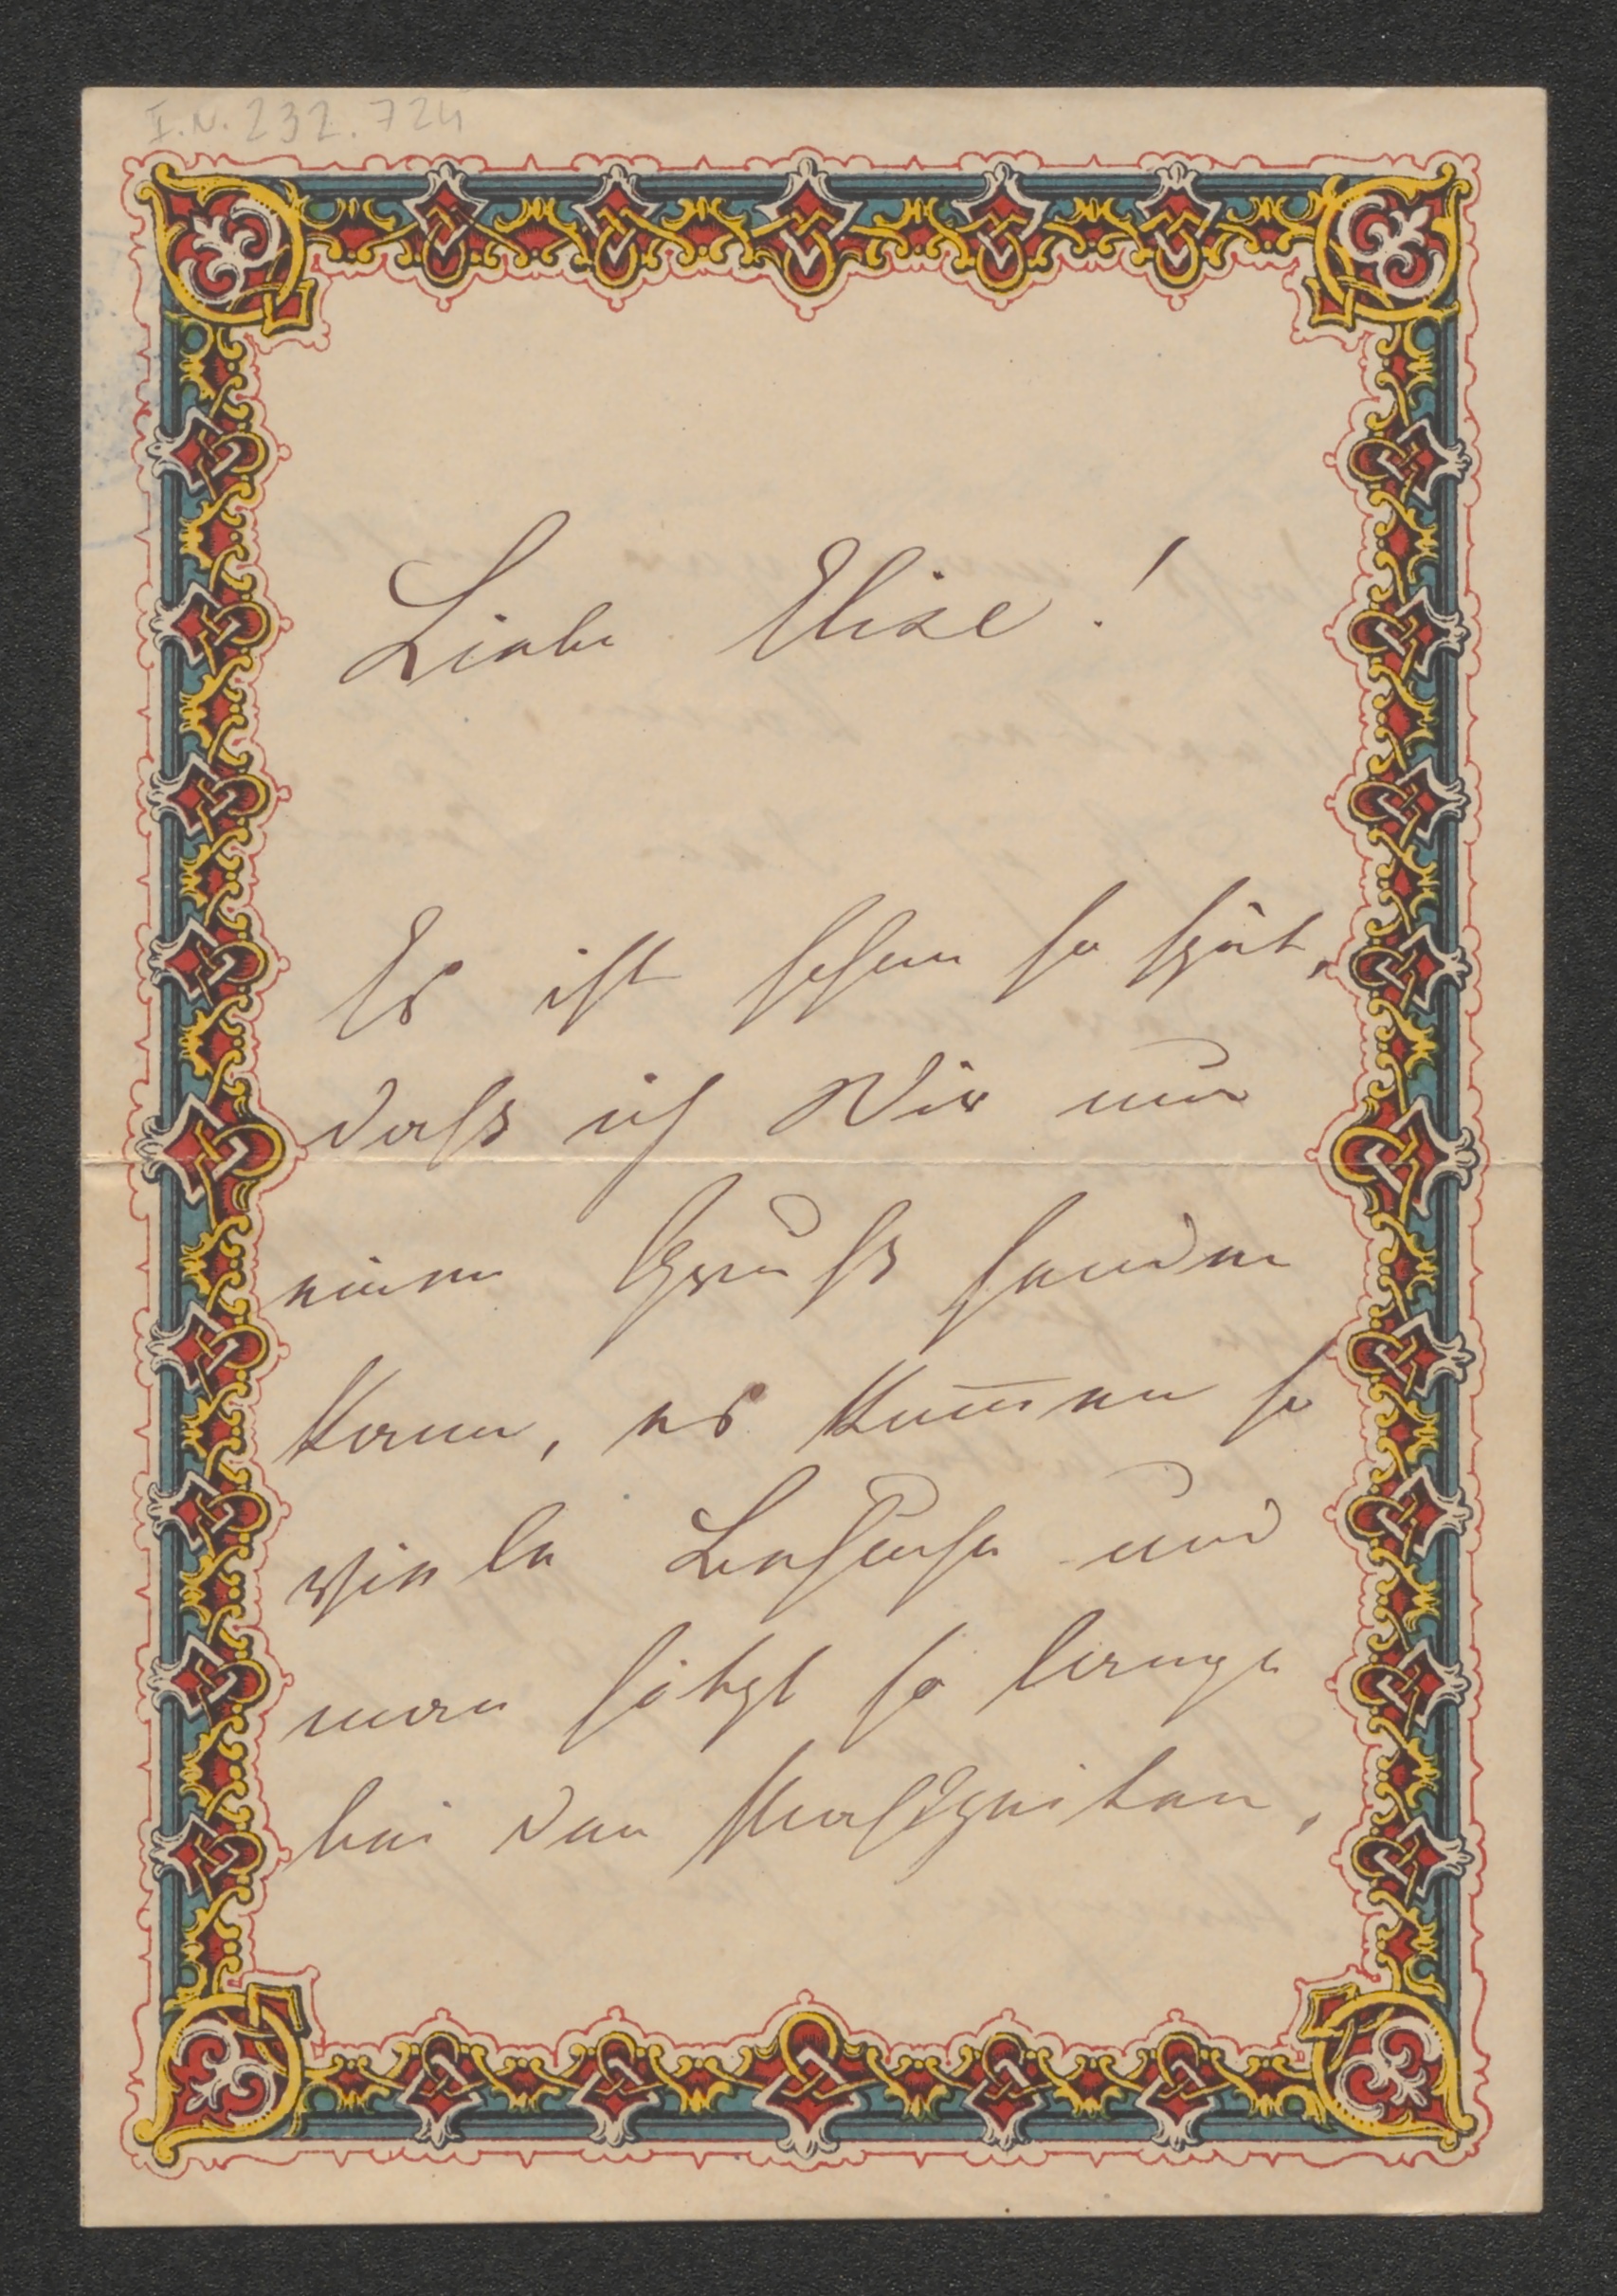 I.N. 232.724
Liebe Elise!
Es ist schon so spät,
dass ich Dir nur
einen Gruß senden
kann, es kom̅en so
viele Besuche und
man sitzt so lange
bei den Mahlzeiten,